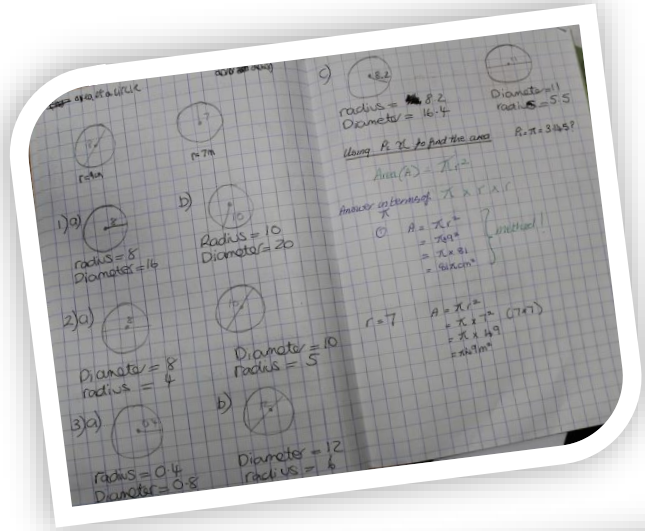 area of a circle
r=9cm
r=7m
1)a)
8
radius = 8
Diameter = 16
b)
10
Radius = 10
Diameter = 20
2)a)
8
Diameter = 8
radius = 4
10
Diameter = 10
radius = 5
3)a)
0.4
radius = 0.4
Diameter = 0.8
b)
12
Diameter = 12
radius = 6
c)
8.2
radius = 8.2
Diameter = 16.4
11
Diameter = 11
radius = 5.5
Using Pi π to find the area
Area(A) = πr²
π x r x r
Answer in terms of π
① A = πr²
= π x 81
= 81πcm²
method 1
r = 7
A = πr²
= π x 7² (7x7)
= π x 49
= π49m²